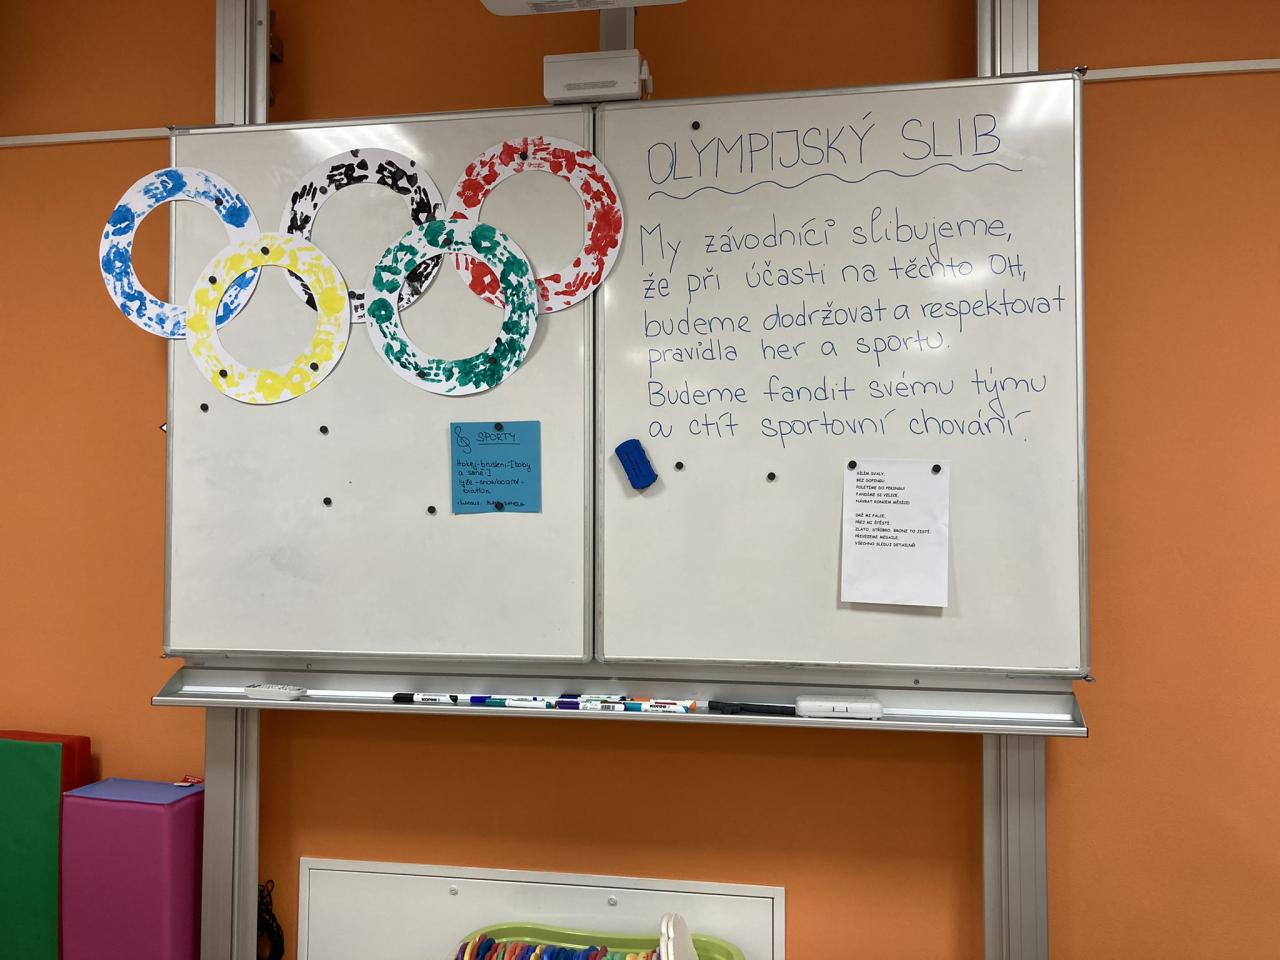 OLYMPIJSKÝ SLIB
My závodníci slibujeme,
že při účasti na těchto OH,
budeme dodržovat a respektovat
pravidla her a sportu.
Budeme fandit svému týmu
a ctít sportovní chování.
SPORTY
Hokej-bruslení-[boby
a sáně]
lyže-snowboard-
biatlon
SÍLÍM SVALY,
BEZ DOPINGU.
POLETÍME DO PEKINGU!
FANDÍME SI VELICE,
NÁVRAT KONCEM MĚSÍCE!
DRŽ MI PALCE,
PŘEJ MI ŠTĚSTÍ,
ZLATO, STŘÍBRO, BRONZ TO JISTÍ.
PŘIVEZEME MEDAILE,
VŠECHNO SLEDUJ DETAILNĚ!